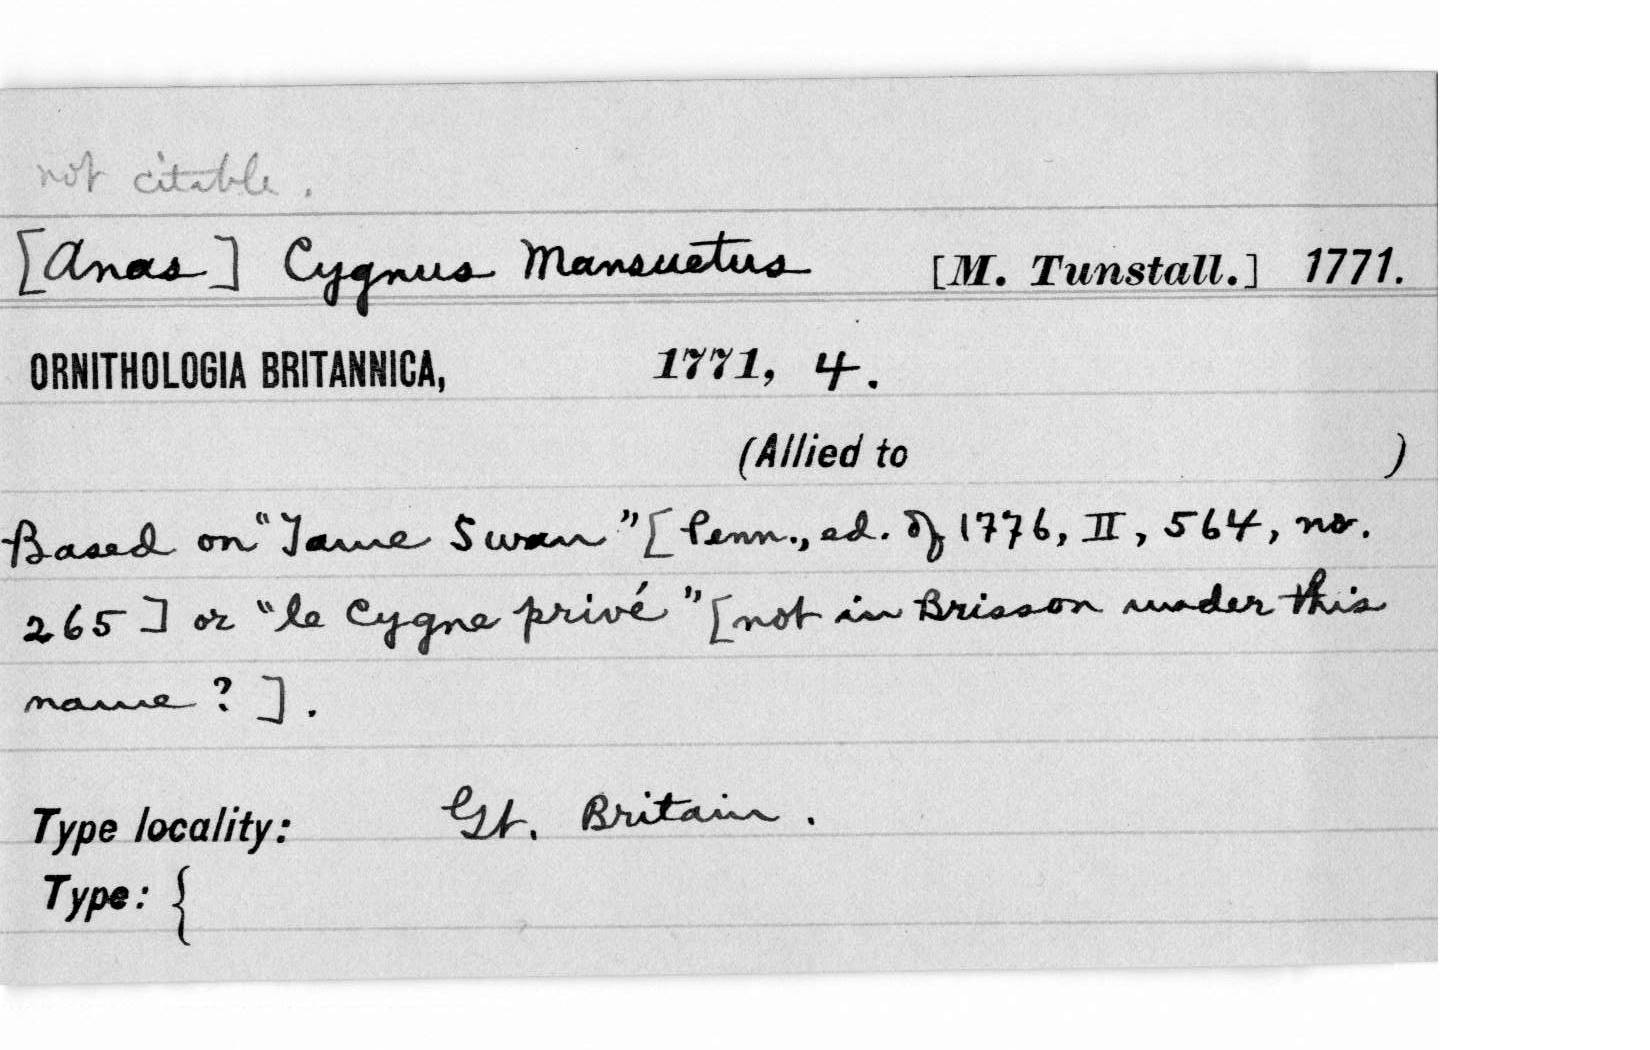 not citable.
[Anas] Cygnus Mansuetus [M. Tunstall.] 1771.
ORNITHOLOGIA BRITANNICA, 1771, 4.
(Allied to )
Based on "Tame Swan" [Penn., ed. of 1776, II, 564, no.
265] or "le Cygne privé" [not in Brisson under this
name?].
Type locality: Gt. Britain.
Type: {